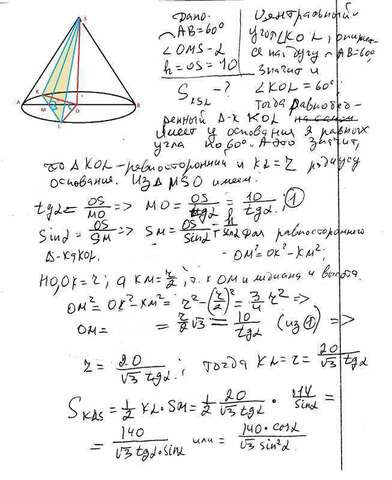 S
A
K
M
O
B
L
Дано:
⌒AB=60°
∠OMS=α
h=OS=10
S_KSL -?
Центральный
угол ∠KOL, опирает-
ся на дугу ⌒AB=60°,
значит и
∠KOL=60°
Тогда равнобед-
ренный Δ-к KOL
имеет у основания 2 равных
угла по 60°. А это значит,
что ΔKOL-равносторонний и KL=r радиусу
основания. Из ΔMSO имеем:
tgα=OS/MO => MO=OS/tgα=10/tgα; (1)
Sinα=OS/SM => SM=OS/Sinα Для равностороннего
Δ-ка KOL: OM²=OK²-KM²;
Но, OK=r; а KM=r/2, т.к OM и медиана и высота.
OM²=OK²-KM²=r²-(r/2)²=3/4 r² =>
OM= =r/2 √3=10/tgα (из (1)) =>
r=20/(√3 tgα); тогда KL=r=20/(√3 tgα)
S_KLS=1/2 KL·SM=1/2 20/(√3 tgα)·14/sinα=
=140/(√3 tgα·sinα) или=140·cosα/(√3 sin²α)